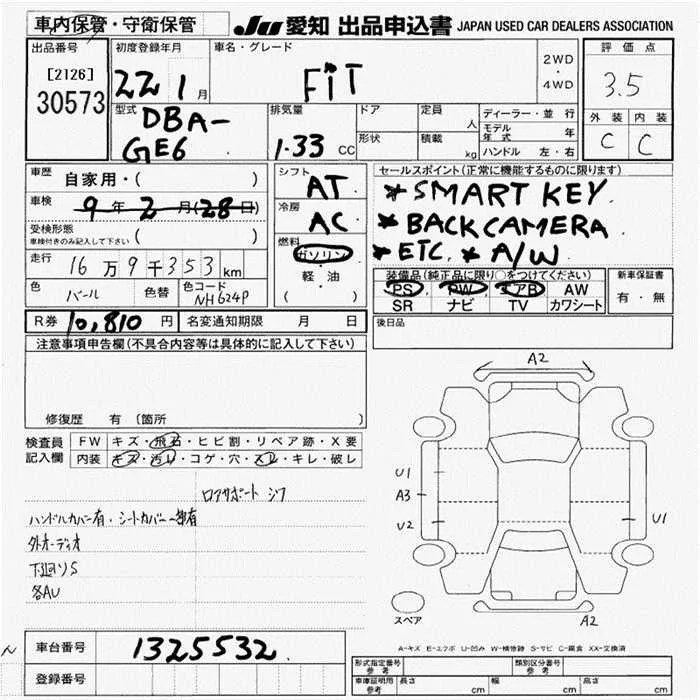 車内保管・守衛保管
JU 愛知 出品申込書 JAPAN USED CAR DEALERS ASSOCIATION
出品番号
[2126]
30573
初度登録年月
22 1 月
車名・グレード
FiT
2WD
・
4WD
評価点
3.5
外装 内装
C C
型式
DBA-
GE6
排気量
1.33 CC
ドア
形状
定員 人
積載 kg
ディーラー・並行
モデル年式 年
ハンドル 左・右
車歴 自家用・( )
車検 9年2月(28日)
受検形態
車検付きのみ記入して下さい ( )
走行 16万9千353km
色 パール 色替 色コード NH624P
シフト AT
冷房 AC
燃料
ガソリン
・
軽・油
( )
セールスポイント(正常に機能するものに限ります)
* SMART KEY.
* BACK CAMERA
* ETC. * A/W
装備品(純正品に限り○をつけてください)
PS PW エアB AW
SR ナビ TV カワシート
新車保証書
有・無
R券 10,810 円 名変通知期限 月 日
後日品
注意事項申告欄(不具合内容等は具体的に記入して下さい)
修復歴 有〔箇所 〕
検査員
記入欄
FW キズ・飛石・ヒビ割・リペア跡・X要
内装 キズ・汚レ・コゲ・穴・スレ・キレ・破レ
ロアサポート ジワ
ハンドルカバー有・シートカバー一部有
外オーディオ
下廻りS
各AU
A2
U1
A3
U2
U1
A2
スペア
A-キズ E-エクボ U-凹み W-補修跡 S-サビ C-腐食 XX-交換済
車台番号 1325532
登録番号
型式指定番号
参考
類別区分番号
参考
車庫証明用
参考
長さ cm 幅 cm 高さ cm